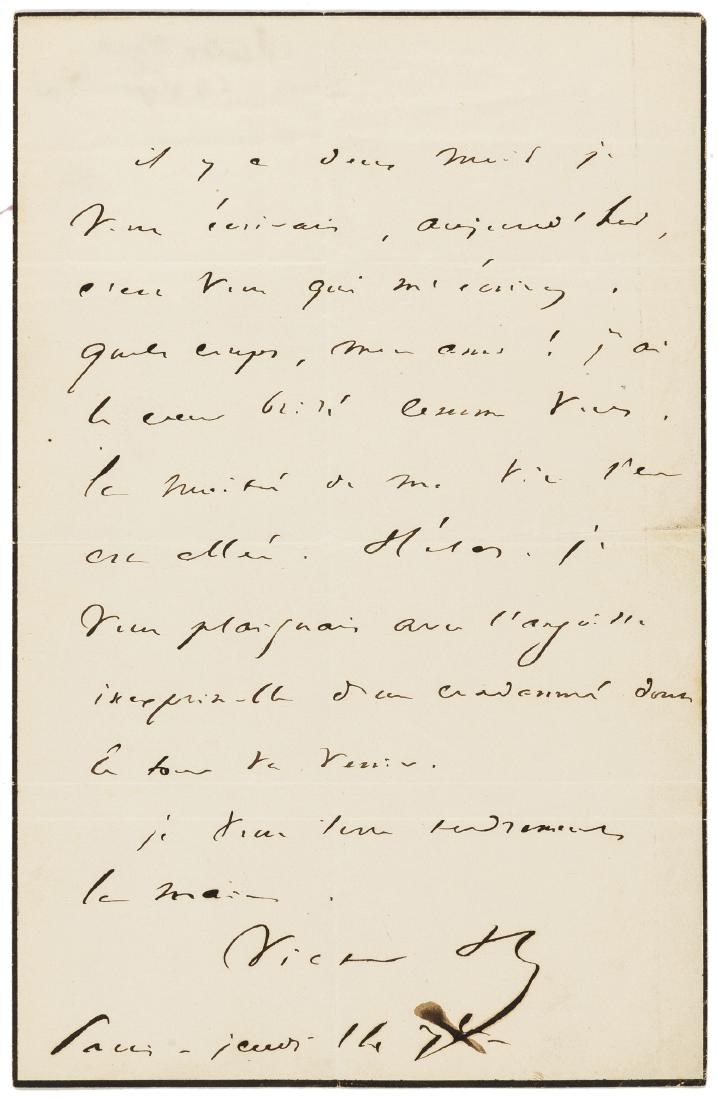 il y a deux mois je
vous écrivais, aujourd'hui,
c'est vous qui m'écrivez.
quels coups, mon ami ! j'ai
le cœur brisé comme vous.
la moitié de ma vie s'en
est allée. Hélas. je
vous plaignais avec l'angoisse
inexprimable d'un condamné dont
le tour va venir.
je vous serre tendrement
la main.
Victor H
Paris - jeudi